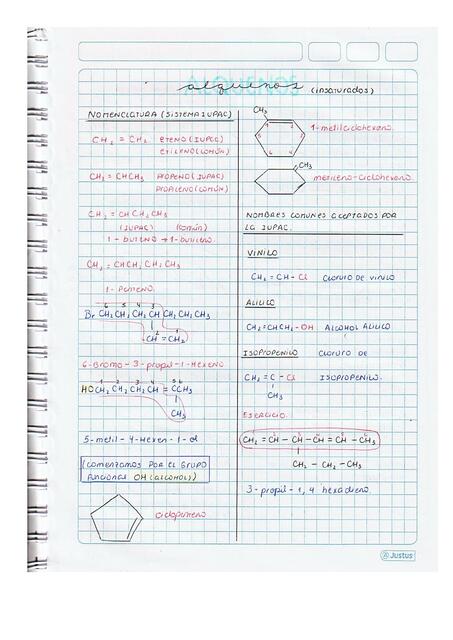 ALQUENOS
alquenos (insaturados)
NOMENCLATURA (SISTEMA IUPAC)
CH2 = CH2 ETENO (IUPAC)
ETILENO (COMÚN)
CH2 = CHCH3 PROPENO (IUPAC)
PROPILENO (COMÚN)
CH2 = CHCH2CH3
(IUPAC) (COMÚN)
1-buteno → 1-butileno
CH2 = CHCH2CH2CH3
1-Penteno
6 5 4 3
Br CH2CH2CH2CHCH2CH2CH3
2 1
CH = CH2
6-Bromo-3-propil-1-Hexeno
1 2 3 4 5 6
HOCH2CH2CH2CH = CCH3
CH3
5-metil-4-Hexen-1-ol
(comenzamos por el grupo
funcional OH (alcohol))
ciclopenteno
CH3
1 2 3 4 5 6
1-metilciclohexeno
CH3
metileno-ciclohexano
NOMBRES COMUNES ACEPTADOS POR
LA IUPAC.
VINILO
CH2 = CH - Cl Cloruro de vinilo
ALILICO
CH2=CHCH2-OH Alcohol alilico
ISOPROPENILO Cloruro de
CH2 = C - Cl isopropenilo.
CH3
EJERCICIO.
CH2 = CH - CH - CH = CH - CH3
CH2 - CH2 - CH3
3-propil-1,4 hexadieno.
Justus